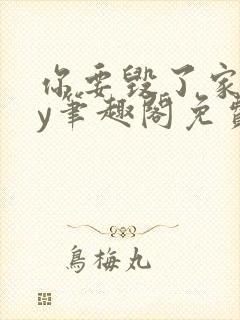 你要毁了家
y笔趣阁免费
乌梅丸